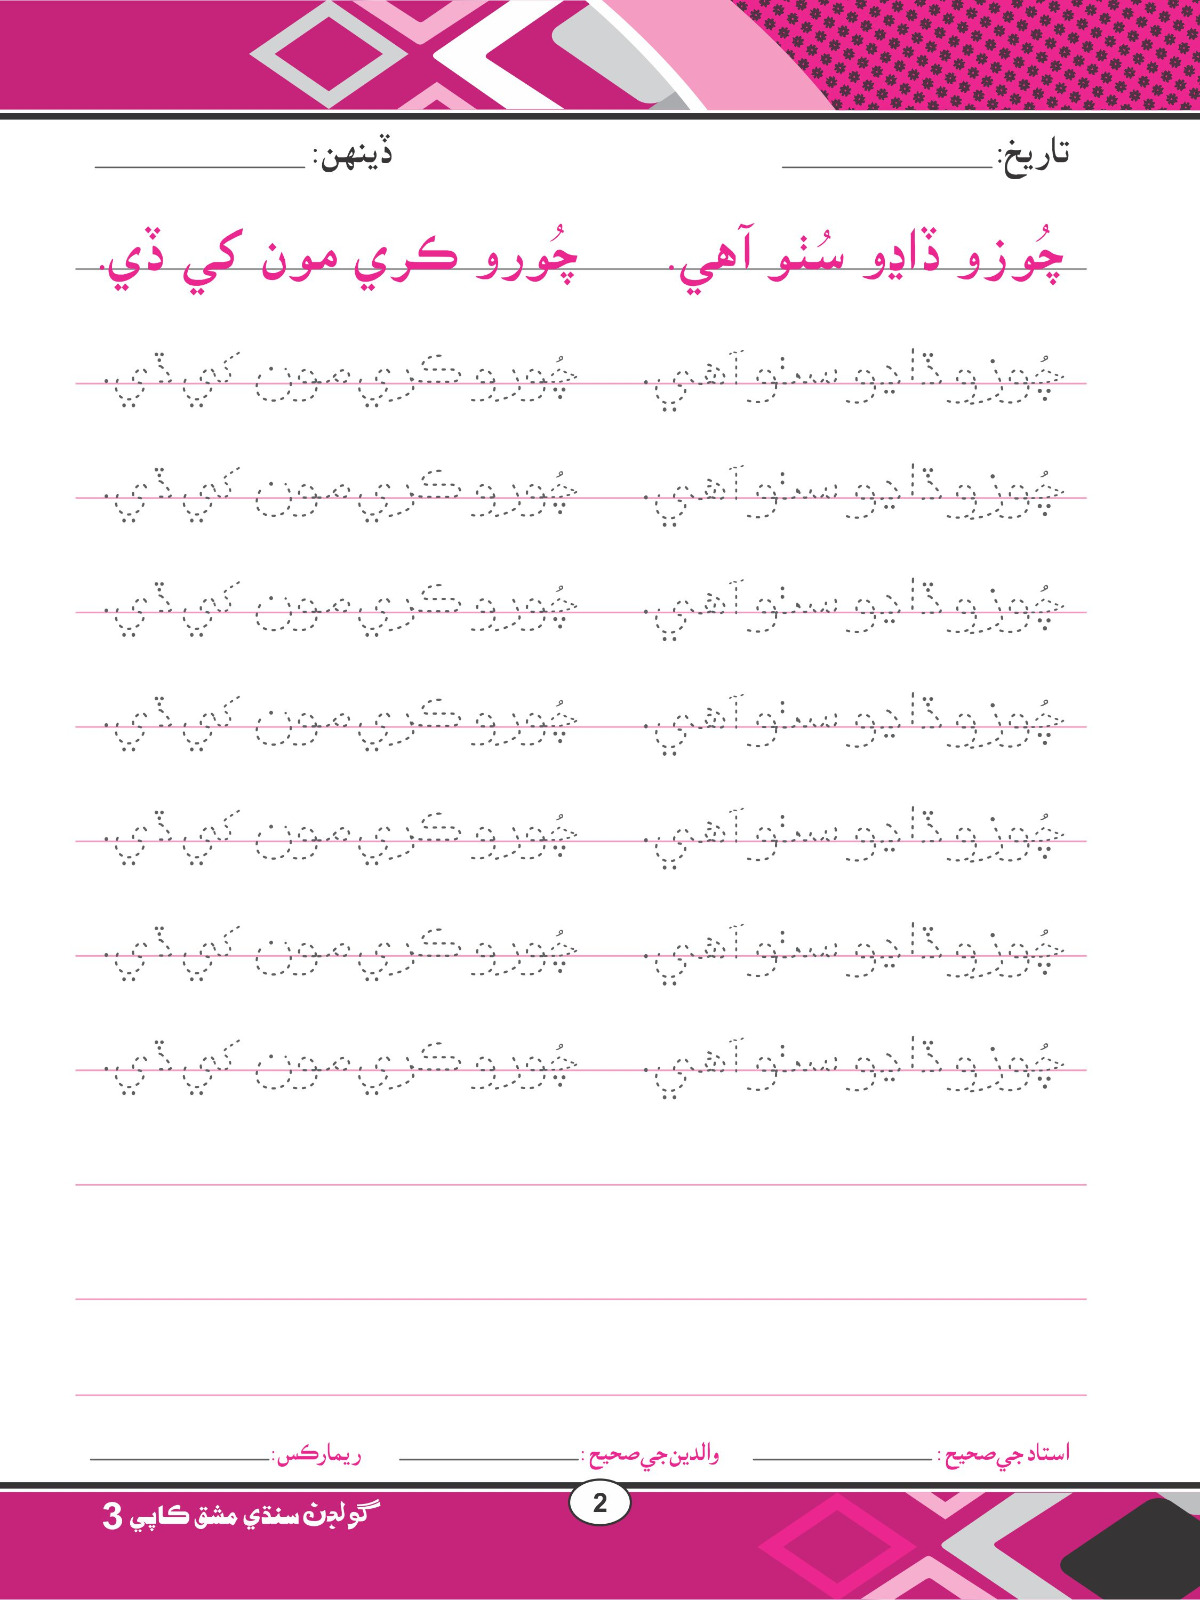 تاريخ: ڏينهن:
چُوزو ڏاڍو سُٺو آهي. چُورو ڪري مون کي ڏي.
چُوزو ڏاڍو سٺو آهي. چُورو ڪري مون کي ڏي.
چُوزو ڏاڍو سٺو آهي. چُورو ڪري مون کي ڏي.
چُوزو ڏاڍو سٺو آهي. چُورو ڪري مون کي ڏي.
چُوزو ڏاڍو سٺو آهي. چُورو ڪري مون کي ڏي.
چُوزو ڏاڍو سٺو آهي. چُورو ڪري مون کي ڏي.
چُوزو ڏاڍو سٺو آهي. چُورو ڪري مون کي ڏي.
چُوزو ڏاڍو سٺو آهي. چُورو ڪري مون کي ڏي.
استاد جي صحيح : والدين جي صحيح : ريمارڪس:
2
گولڊن سنڌي مشق ڪاپي 3